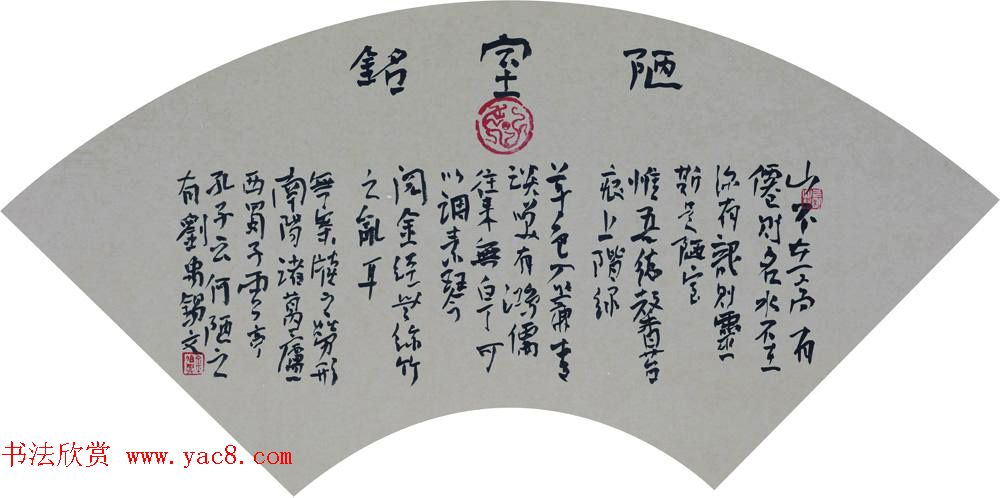 陋室銘
山不在高有
僊則名水不在
深有龍則靈
斯是陋室
惟吾德馨苔
痕上階綠
草色入簾青
談笑有鴻儒
往来無白丁可
以調素琴
閱金經無絲竹
之亂耳
無案牘之勞形
南陽諸葛廬
西蜀子雲亭
孔子云何陋之
有劉禹錫文
书法欣赏 www.yac8.com